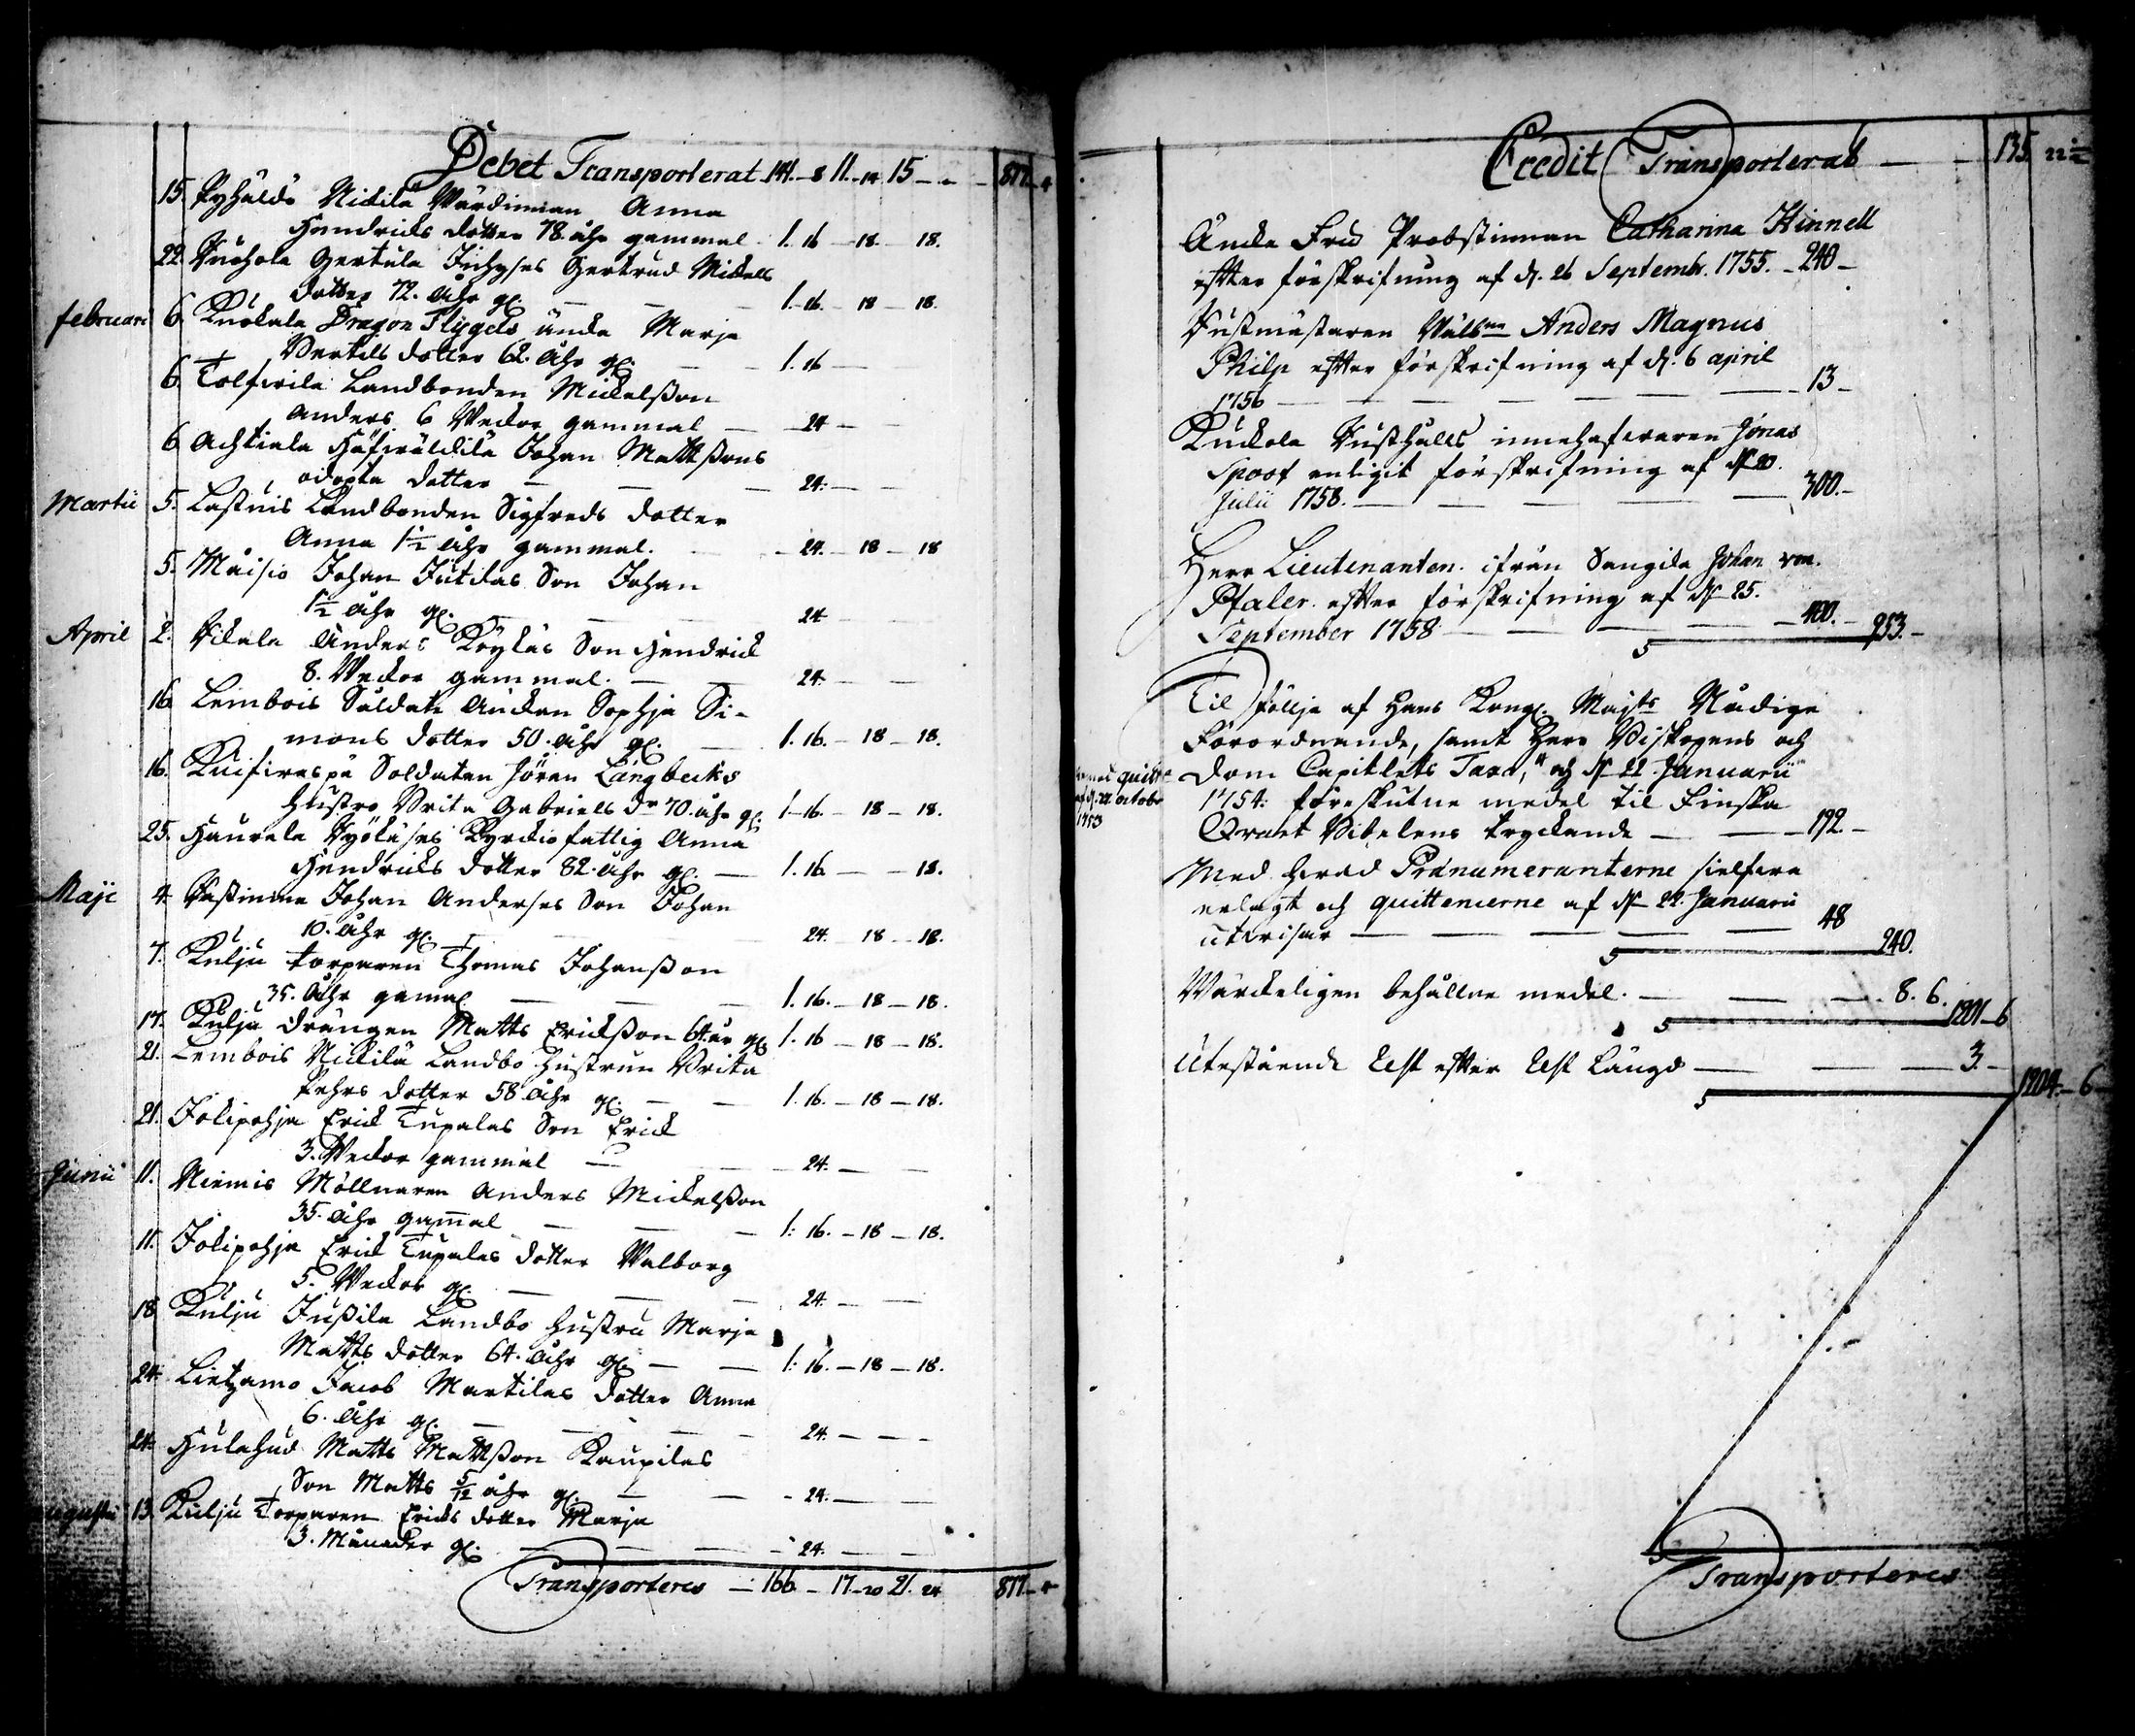 Debet Transporterat 141.–8 11.–14 15 – – 877.–4
15. Pyhäldö Nickilä Wärdinnan Anna
Hendricks dotter 78. åhr gammal 1. 16 – 18 – 18.
22. Gertula Gertrud Mickels
dotter 72. åhr gl. – – – 1. 16. – 18 – 18.
februarii 6. Kuckala Dragon Flygels änka Marja
Bertils dotter 62. åhr gl. – – 1. 16 –
6. Landbonden Mickelsson
Anders 6 Weckor gammal – – 24 –
6 Achtiala Johan Mattssons
odöpta dotter – – – 24: – –
Martii 5. Landbonden Sigfreds dotter
Anna 1 1/2 åhr gammal. – 24. – 18 – 18
5. Maisio Johan Jutilas Son Johan
1 1/2 åhr gl. – – – 24
April 2. Anders Köykäs Son Hendrick
8. Weckor gammal. – – 24. – –
16. Lembois Soldate Änckan Sophja Si-
mons dotter 50. åhr gl. – 1. 16. – 18 – 18.
16. Soldaten Jöran Långbecks
hustro Brita Gabriels Dr 70. åhr gl. 1–16. – 18 – 18.
25. Haurala Kyrckiofattig Anna
Hendricks dotter 82. åhr gl. – 1. 16 – – 18.
Maji 4. Johan Anderses Son Johan
10. åhr gl. – – 24. 18 – 18.
7. Kulju torparen Thomas Johansson
35. åhr gamal – – – 1. 16. – 18 – 18.
17. Kulju drängen Matts Ericksson 64. år gl. 1. 16 – 18 – 18.
21. Lembois Nickilä Landbo hustrun Brita
Pehrs dotter 58. åhr gl. – – 1. 16. – 18 – 18.
21. Jokipohja Erick Tupalas Son Erick
3. Weckor gammal – – 24. – –
Junii 11. Niemis Möllnaren Anders Mickelsson
35. åhr gammal – – – 1: 16. – 18 – 18.
11. Jokipohja Erick Tupalas dotter Walborg
5. Weckor gl. – – – 24. – –
18 Kulju Jussila Landbo hustru Marja
Matts dotter 64. åhr gl. – – 1: 16. – 18 – 18.
24. Lietzamo Jacob Martilas dotter Anna
6. åhr gl. – – – 24. – – –
24. Hulahud Matts Mattsson Kaupilas
Son Matts 5/12 åhr gl. – – – 24. – –
Augusti 13. Kulju Torparen Ericks dotter Marja
3. Månader gl. – – – 24. – –
Transporteres – 166. – 17–20 21. 24 877.–4
Credit Transporterat – – 135 22 1/2
Änka Frus Probstinnan Catharina Hinnell
efter förskrifning af d. 26 Septembr. 1755. – 240 –
Rustmästaren Wälbne Anders Magnus
Philp efter förskrifning af d. 6 april
1756 – – – – – – 13 –
Kuckola Rusthålls innehafwaren Jonas
Spoof enligit förskrifning af d. 20.
Julii 1758. – – – – 300. –
Herr Lieutenanten ifrån Sangila Johan von
Pfaler efter förskrifning af d. 25.
September 1758 – – – – 400. – 953. –
Til följe af Hans Kongl. Majts Nådige
Förordnande, samt Herr Biskopens och
Dom Capitlets Taxa, och d. 22 Januarii
quitte
af d. 22 octobr
1753
1754: förskutne medel til Finska
Qvart Bibelens tryckande – – – 192. –
Med hwad Pränumeranterne sielfwa
erlagt och quittencerne af d. 22. Januarii
utwisar – – – – – 48
S 240.
Wärckeligen behållne medel. – – – 8. 6.
S 1201–6
Utestående Rest efter Rest Längd – – – 3. –
S 1204.–6
Transporteres